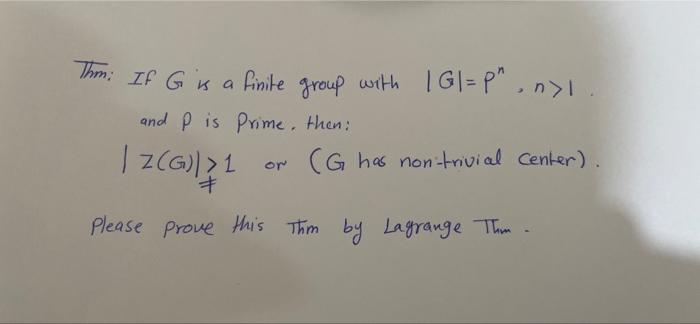 Thm: If G is a finite group with |G| = pⁿ, n>1.
and p is Prime. then:
|Z(G)| ≩ 1 or (G has non-trivial center).
Please prove this Thm by Lagrange Thm.